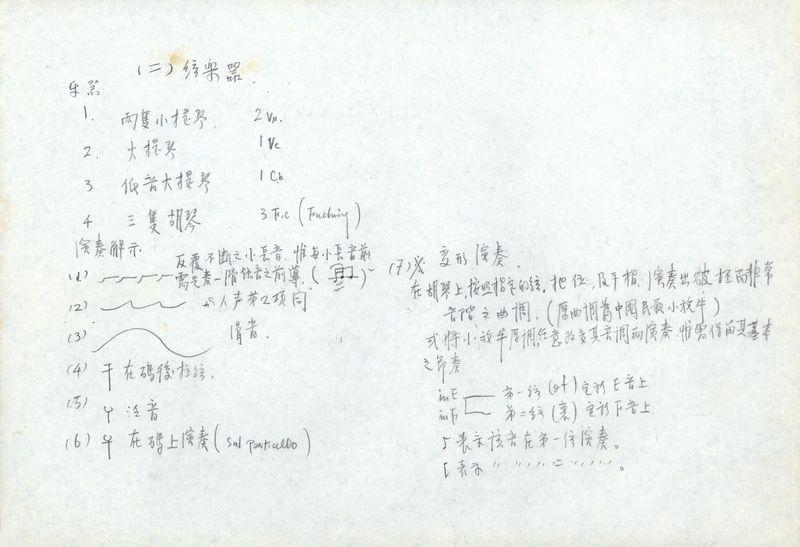 (二) 絃樂器.
乐器
1. 兩隻小提琴. 2 Vn.
2. 大提琴 1 Vc
3 低音大提琴 1 Cb
4 三隻胡琴 3 F.c. (Fuching)
演奏解示
(1) 反覆不斷之小長音. 惟每小長音前
需先奏一階蝕音之前導. ( )
(2) 與人声第2項同
(3) 滑音.
(4) 在碼後拉絃.
(5) 泛音
(6) 在碼上演奏 (sul ponticello)
(7) 变形演奏.
在胡琴上, 按照指定的絃, 把位, 及手指, 演奏出破格而非常
音階之曲調. (原曲調為中國民歌小放牛)
或將小放牛原調任意改变其音調而演奏. 惟需保留其基本
之節奏
in E 第一絃 (外) 定於 E 音上
in F 第二絃 (裏) 定於 F 音上
表示該音在第一絃演奏。
表示 〃 〃 〃 〃 二 〃 〃 〃 。